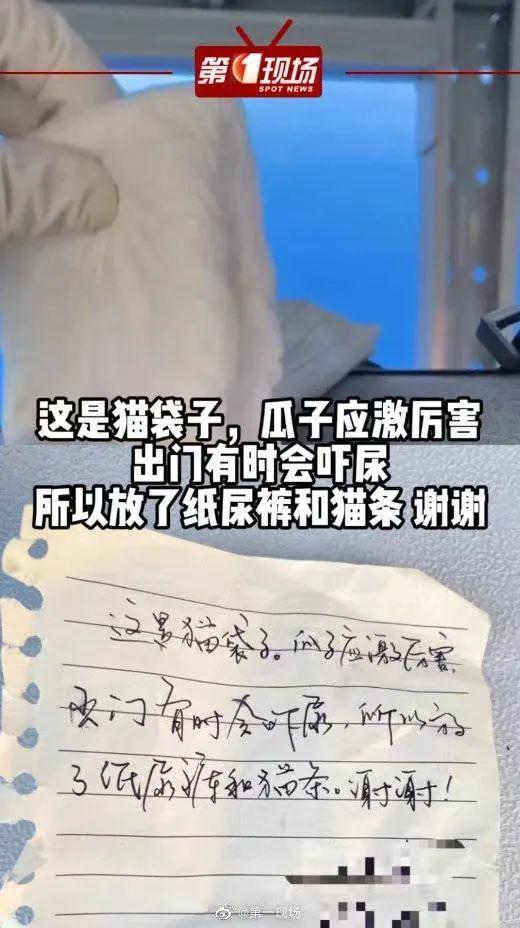 第1现场
SPOT NEWS
这是猫袋子，瓜子应激厉害
出门有时会吓尿
所以放了纸尿裤和猫条 谢谢
这是猫袋子。瓜子应激厉害，
出门有时会吓尿，所以放
了纸尿裤和猫条。谢谢！
@第一现场